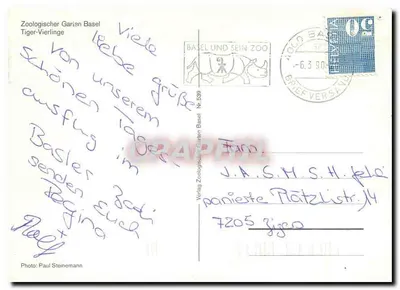 Zoologischer Garten Basel
Tiger-Vierlinge
Viele
liebe grüße
von unserem
schönen Tages-
ausflug im
Basler Zoo
senden Euch
Regina
+
Rolf
Photo: Paul Steinemann
Verlag Zoologischer Garten Basel Nr. 539
BASEL UND SEIN ZOO
4000 BASEL
-6.5.90
BRIEFVERSAND
HELVETIA
50
Fam.
J. A. S. M. S. H.
14
7205 Zizers